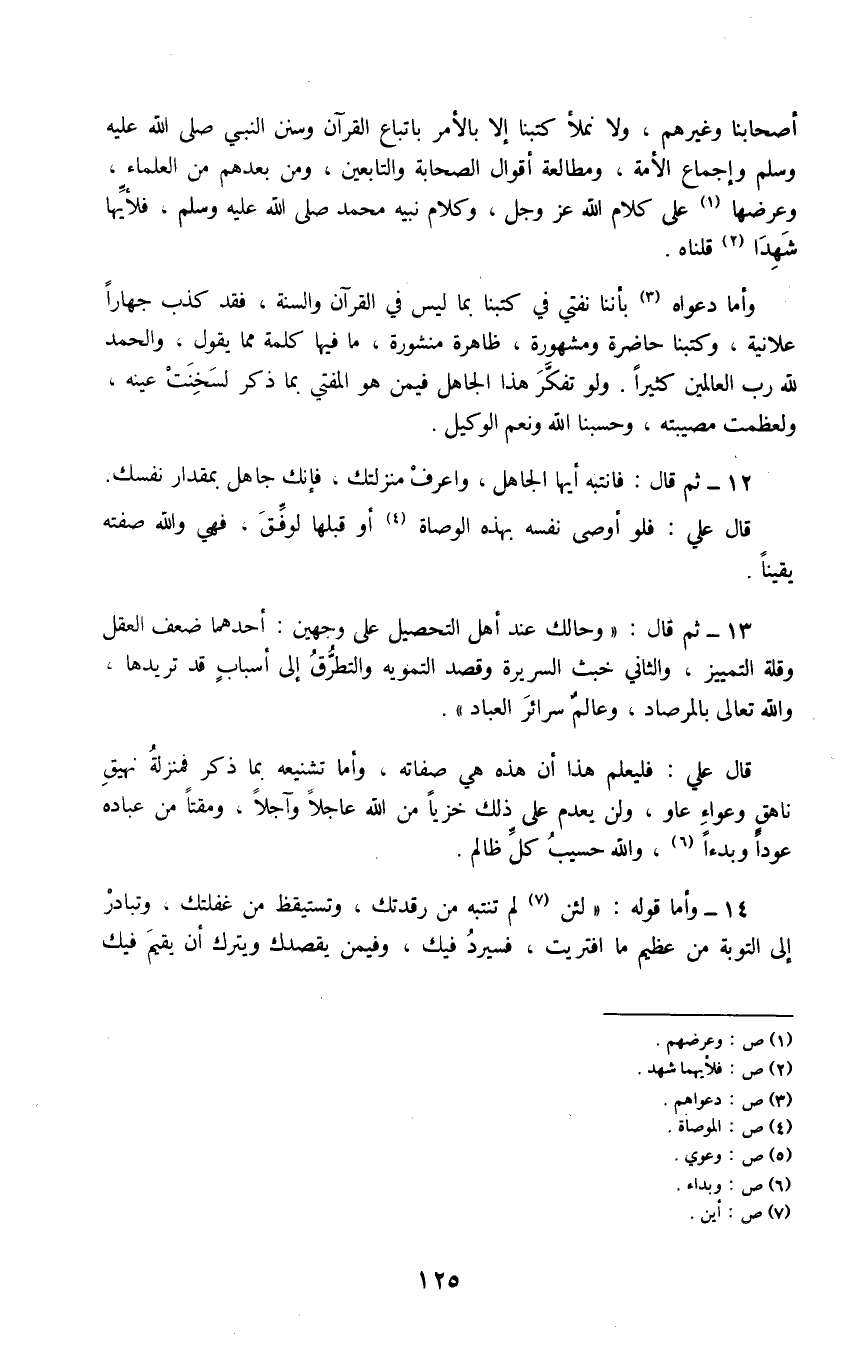 أصحابنا وغيرهم ، ولا نملأ كتبنا إلا بالأمر باتباع القرآن وسنن النبي صلى الله عليه
وسلم وإجماع الأمة ، ومطالعة أقوال الصحابة والتابعين ، ومن بعدهم من العلماء ،
وعرضها (١) على كلام الله عز وجل ، وكلام نبيه محمد صلى الله عليه وسلم ، فلأيِّها
شَهِدَا (٢) قلناه .
وأما دعواه (٣) بأننا نفتي في كتبنا بما ليس في القرآن والسنة ، فقد كذب جهاراً
علانية ، وكتبنا حاضرة ومشهورة ، ظاهرة منشورة ، ما فيها كلمة مما يقول ، والحمد
لله رب العالمين كثيراً . ولو تفكَّرَ هذا الجاهل فيمن هو المفتي بما ذكر لسَخِنَتْ عينه ،
ولعظمت مصيبته ، وحسبنا الله ونعم الوكيل .
١٢ ـ ثم قال : فانتبه أيها الجاهل ، واعرفْ منزلتك ، فإنك جاهل بمقدار نفسك.
قال علي : فلو أوصى نفسه بهذه الوصاة (٤) أو قبلها لوفِّقَ ، فهي والله صفته
يقيناً .
١٣ ـ ثم قال : « وحالك عند أهل التحصيل على وجهين : أحدهما ضعف العقل
وقلة التمييز ، والثاني خبث السريرة وقصد التمويه والتطرُّقُ إلى أسبابٍ قد تريدها ،
والله تعالى بالمرصاد ، وعالمٌ سرائرَ العباد » .
قال علي : فليعلم هذا أن هذه هي صفاته ، وأما تشنيعه بما ذكر فمنزلةُ نهيقِ
ناهقٍ وعواءِ عاو ، ولن يعدم على ذلك خزياً من الله عاجلاً وآجلاً ، ومقتاً من عباده
عوداً وبدءاً (٦) ، والله حسيبُ كلِّ ظالم .
١٤ ـ وأما قوله : « لئن (٧) لم تنتبه من رقدتك ، وتستيقظ من غفلتك ، وتبادرْ
إلى التوبة من عظيم ما افتريت ، فسيردُ فيك ، وفيمن يقصدك ويترك أن يقيمَ فيك
(١) ص : وعرضهم .
(٢) ص : فلأيهما شهد .
(٣) ص : دعواهم .
(٤) ص : الموصاة .
(٥) ص : وعوي .
(٦) ص : وبداء .
(٧) ص : أين .
١٢٥